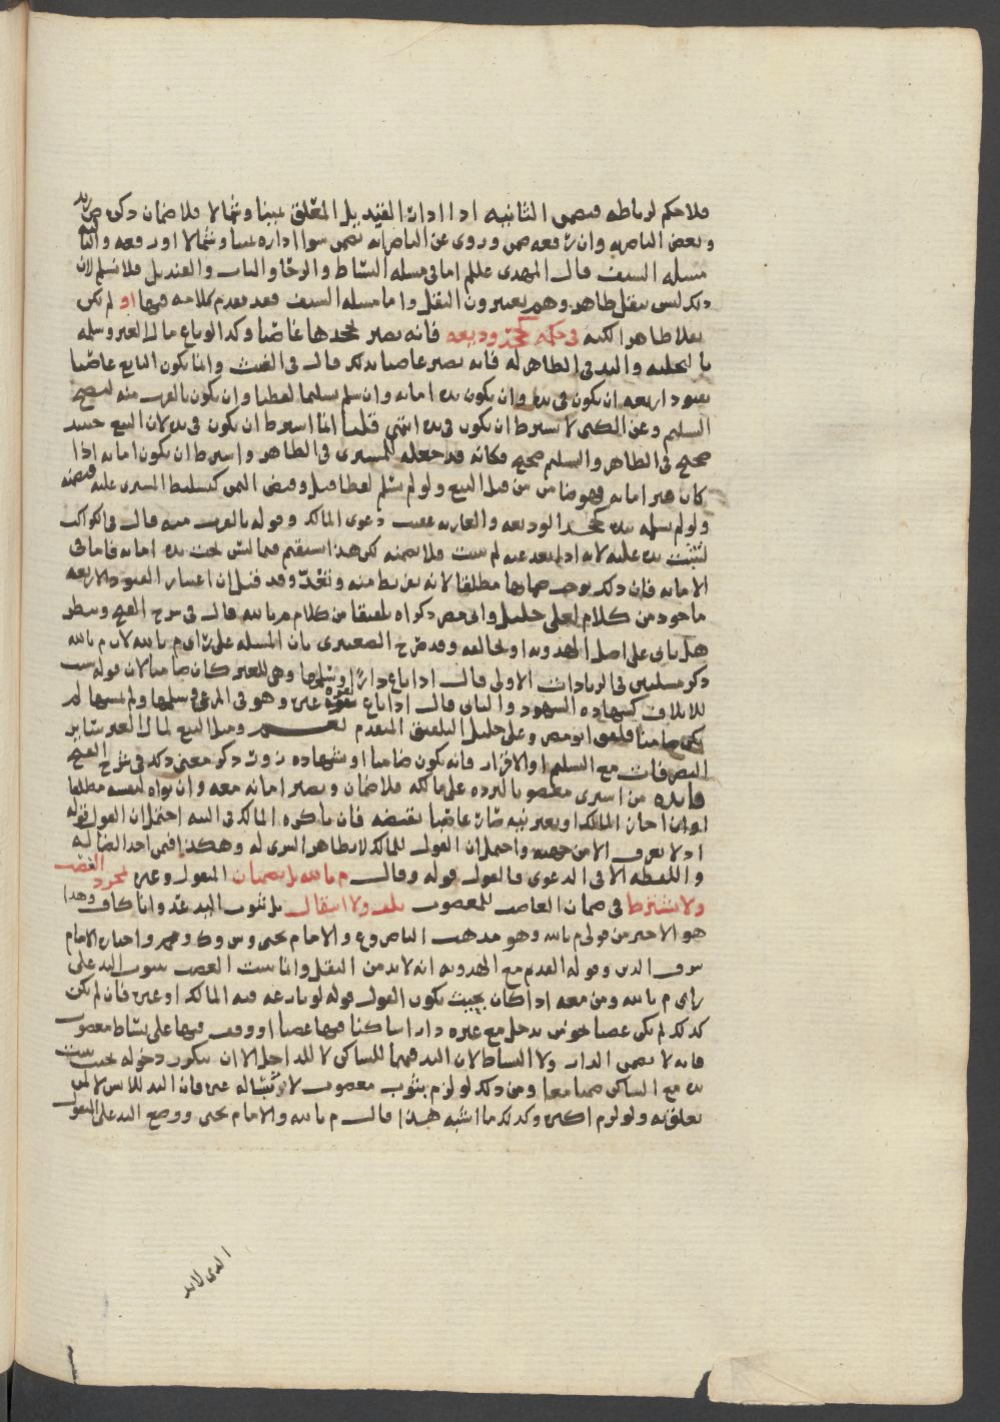 فلا حكم لرباطه فيضمن الثانيه اذا ادار القنديل المعلق يمينا وشمالا فلا ضمان ذكره ض زيد
وبعض الناصريه وان رفعه ضمن وروي عن الناصر انه يضمن سوا اداره يمينا وشمالا او رفعه والثالثه
مسله السيف قال المهدي عللم اما في مسله البساط والرحا والباب والقنديل فلا نسلم لان
ذلك ليس بنقل ظاهر وهم يعتبرون النقل واما مسله السيف فقد تقدم كلامه فيها او لم يكن
نقلا ظاهرا لكنه في حكمه كجحد وديعه فانه يصير بجحدها غاصبا وكذا لو باع مال الغير وسلمه
بالتخليه واليد في الظاهر له فانه يصير غاصبا بذلك قال في الغيث وانما يكون البايع غاصبا
بقيود اربعه ان يكون في يده وان يكون يده امانه وان سلم تسليما لفظيا وان يكون بالقرب منه ليصح
التسليم وعن المكي لا يشترط ان يكون في يده انتهى قلنا انما اشترط ان يكون في يده لان البيع حينيذ
صحيح في الظاهر والتسليم صحيح فكانه قد جعله للمشتري في الظاهر واشترط ان يكون امانه اذا
كان غير امانه فهو ضامن من قبل البيع ولو لم يسلم لفظا قيل وقبض الثمن كتسليط المشتري عليه فيضمنه
ولو لم يسلمه بيده كجحد الوديعه والعاريه عقيب دعوى المالك وقوله بالقرب منه قال في الكواكب
لتثبت يده عليه لانه اذا بعد عنه لم يثبت فلا يضمنه لكن هذا يستقيم فيما ليس تحت يده امانه فاما في
الامانه فان ذلك يوجب ضمانها مطلقا لانه تفريط منه وتعد وقد قيل ان اعتبار القيود الاربعه
ماخوذ من كلام لعلي خليل وابي مضر ذكراه تلفيقا من كلام م بالله قال في شرح الفتح وينظر
هل ياتي على اصل الهدويه او يخالفه وقد صرح الصعيتري بان المسله على راي م بالله لان م بالله
ذكر مسلتين في الزيادات الاولى قال اذا باع دارا وسلمها وهي للغير كان ضامنا لان قوله سبب
للاتلاف كشهاده الشهود والثاني قال اذا باع بقره غيره وهو في المرعى وسلمها ولم يمسها لم
يكن ضامنا فلفق ابو مضر وعلي خليل التلفيق المتقدم نعم ومثل البيع لمال الغير ساير
التصرفات مع التسليم او الاقرار فانه يكون ضامنا او شهاده زور ذكر معنى ذلك في شرح الفتح
فايده من اشترى مغصوبا ليرده على مالكه فلا ضمان ويصير امانه معه وان نواه لنفسه مطلقا
او ان اجاز المالك او بغير نيه صار غاصبا بقبضه فان ناكره المالك في النيه احتمل ان القول قوله
اذ لا يعرف الا من جهته واحتمل ان القول للمالك لان ظاهر الشرى له وهكذا فيمن اخذ الضاله
واللقطه الا في الدعوى فالقول قوله وقال م بالله بل يضمان المنقول وغيره بمجرد الغصب
ولا يشترط في ضمان الغاصب للمغصوب تلف ولا انتقال بل ثبوت اليد عدوانا كاف وهذا
هو الاخير من قولي م بالله وهو مذهب الناصر وع والامام يحيى وش وك ومحمد واختاره الامام
شرف الدين وقوله القديم مع الهدويه انه لا بد من النقل وانما يثبت الغصب بثبوت اليد على
راي م بالله ومن معه اذا كان بحيث يكون القول قوله لو نازعه فيه المالك او غيره فان لم يكن
كذلك لم يكن غصبا نحو من يدخل مع غيره دارا ساكنا فيها غصبا او وقف فيها على بساط مغصوب
فانه لا يضمن الدار ولا البساط لان اليد فيهما للساكن لا للداخل الا ان يكون دخوله بحيث يثبت
يده مع الساكن ضمنا معا ومن ذلك لو لزم بثوب مغصوب لابسا له غيره فان اليد للابس لا لمن
تعلق به ولو لزم اكثره وكذلك ما اشبه هذا قال م بالله والامام يحيى ووضع اليد على المنقول
الذي لا بد